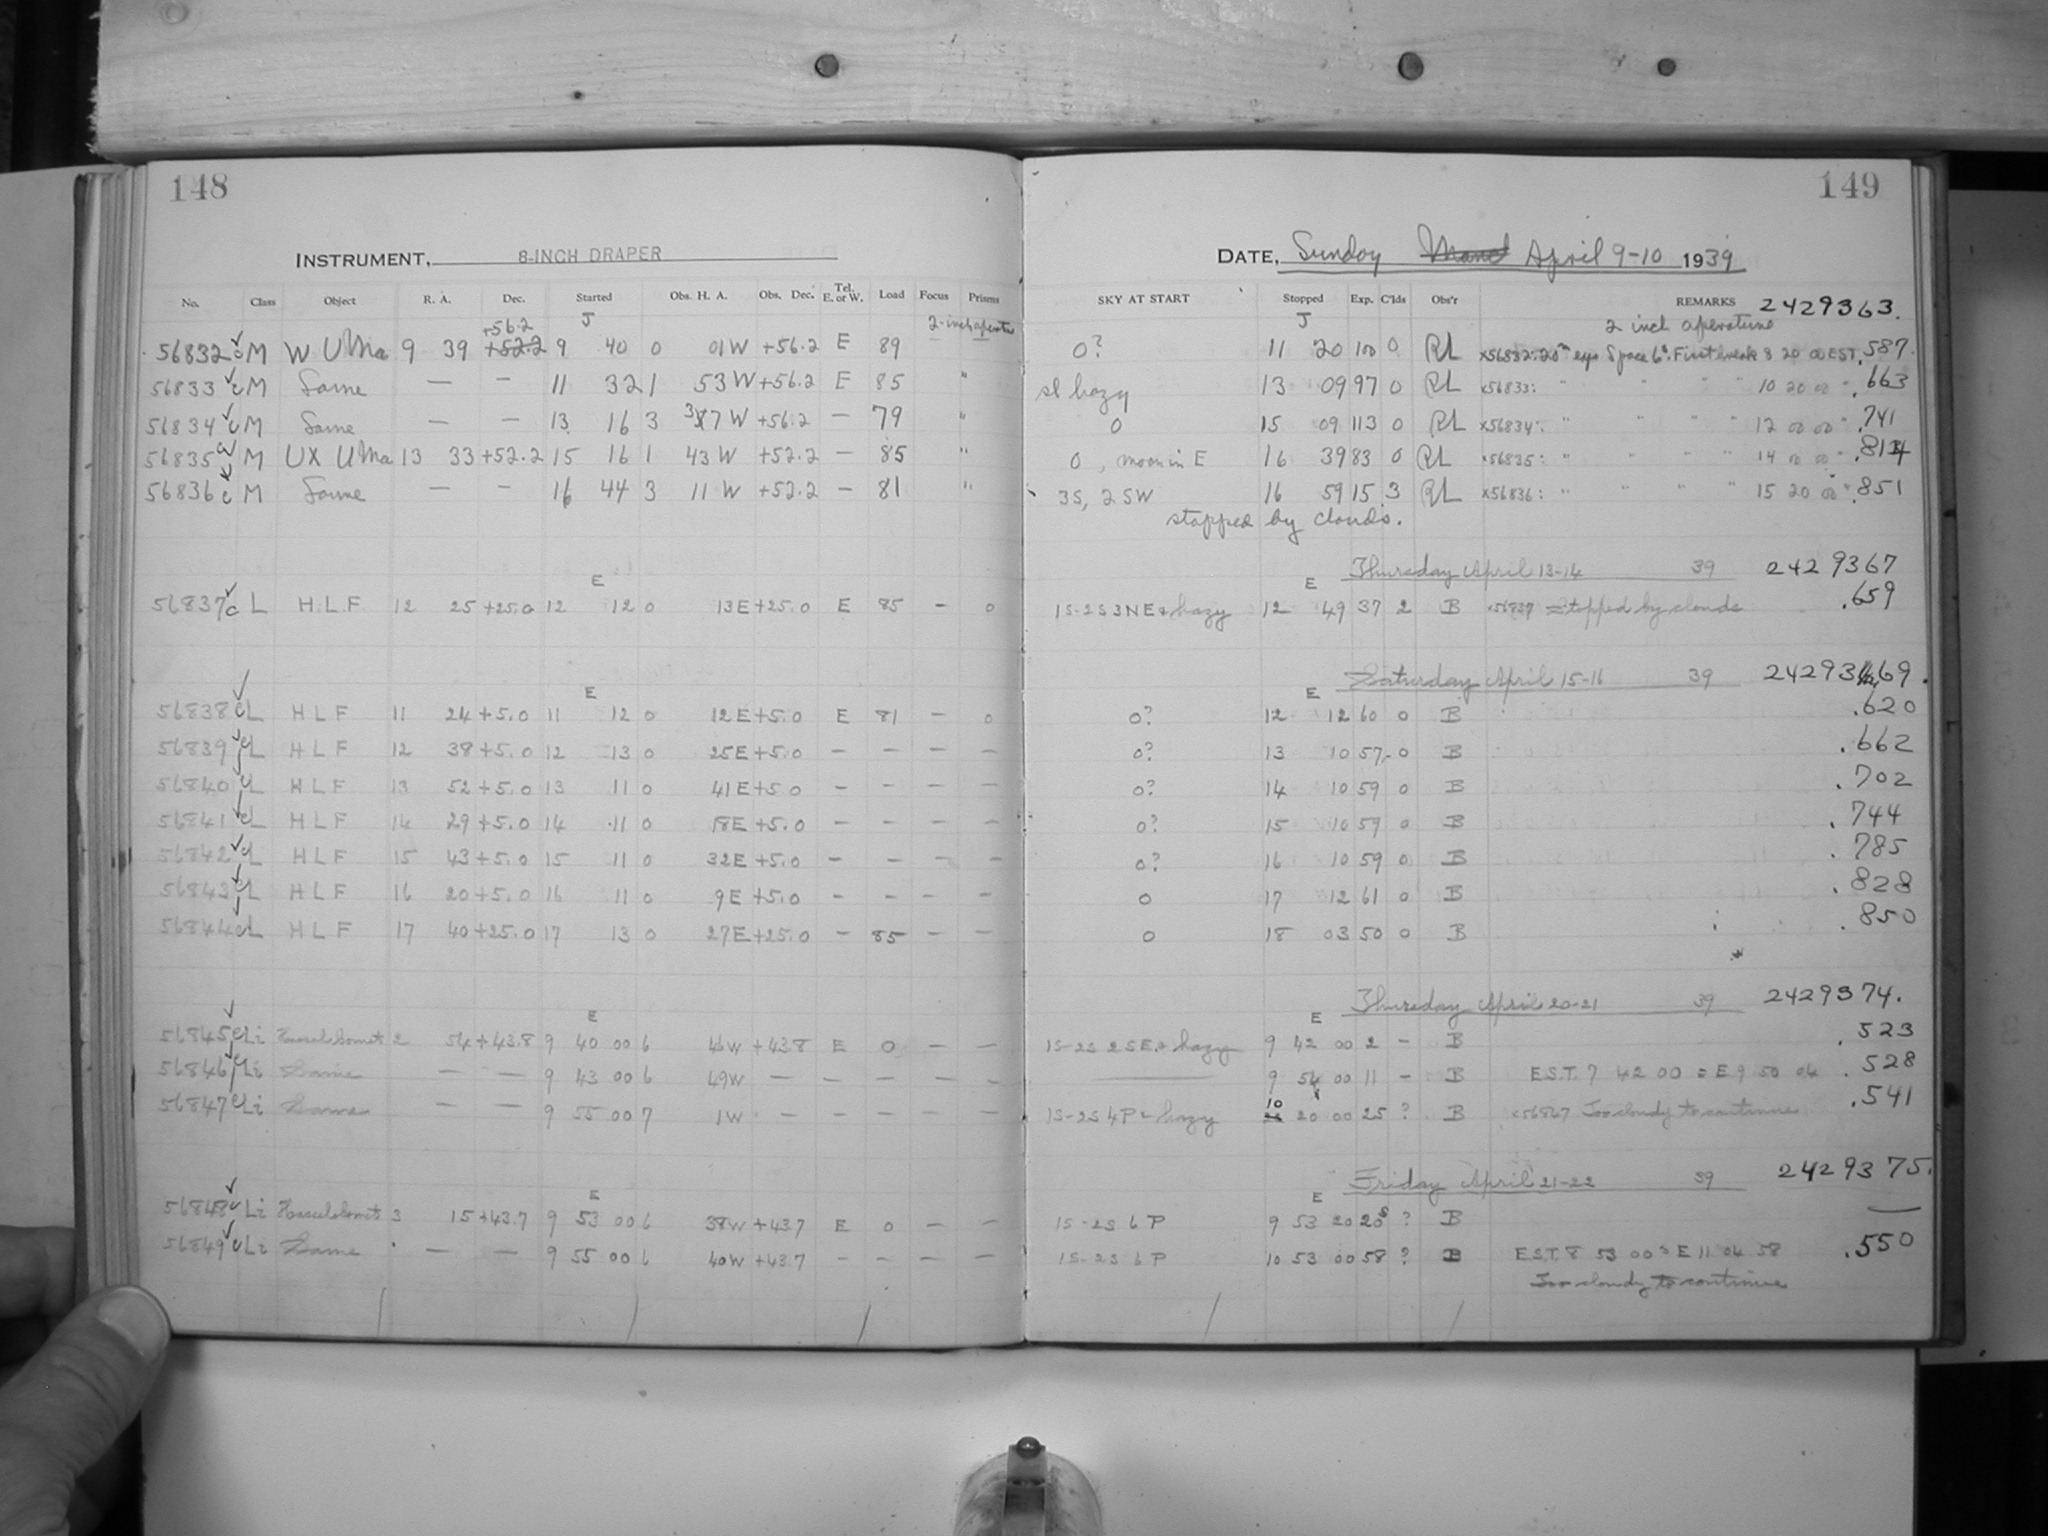 148
149
INSTRUMENT, 8-INCH DRAPER
DATE, Sunday April 9-10 1939
No. Class Object R. A. Dec. Started Obs. H. A. Obs. Dec. Tel. E. or W. Load Focus Prisms SKY AT START Stopped Exp. C'lds Obs'r REMARKS 2429363.
J 2-inch aperture J 2 inch aperature
56832 c M W U Ma 9 39 +56.2 9 40 0 01W +56.2 E 89 0? 11 20 100 0 RL x56832: 20m exps Space 6s. First break 8 20 00 EST .587
56833 c M Same — — 11 32 1 53 W +56.2 E 85 " sl hazy 13 09 97 0 RL x56833: " " " " 10 20 00 " .663
56834 c M Same — — 13 16 3 37 W +56.2 — 79 " 0 15 09 113 0 RL x56834: " " " " 12 00 00 " .741
56835 c M UX U Ma 13 33 +52.2 15 16 1 43 W +52.2 — 85 " 0, moon in E 16 39 83 0 RL x56835: " " " " 14 00 00 " .814
56836 c M Same — — 16 44 3 11 W +52.2 — 81 " 3S, 2 SW 16 59 15 3 RL x56836: " " " " 15 20 00 " .851
stopped by clouds.
Thursday April 13-14 39 2429367
E E
56837 c L H.L.F. 12 25 +25.0 12 12 0 13E +25.0 E 85 — 0 1S-2S 3NE & hazy 12 49 37 2 B x56837 Stopped by clouds .659
Saturday April 15-16 39 2429369.
E E
56838 c L H L F 11 24 +5.0 11 12 0 12E +5.0 E 81 — 0 0? 12 12 60 0 B .620
56839 c L H L F 12 38 +5.0 12 13 0 25E +5.0 — — — — 0? 13 10 57 0 B .662
56840 c L H L F 13 52 +5.0 13 11 0 41E +5.0 — — — — 0? 14 10 59 0 B .702
56841 c L H L F 14 29 +5.0 14 11 0 18E +5.0 — — — — 0? 15 10 59 0 B .744
56842 c L H L F 15 43 +5.0 15 11 0 32E +5.0 — — — — 0? 16 10 59 0 B .785
56843 c L H L F 16 20 +5.0 16 11 0 9E +5.0 — — — — 0 17 12 61 0 B .828
56844 c L H L F 17 40 +25.0 17 13 0 27E +25.0 — 85 — — 0 18 03 50 0 B .850
Thursday April 20-21 39 2429374.
E E
56845 c Li Hassel Comet 2 54 +43.8 9 40 00 6 46W +43.8 E 0 — — 1S-2S 2SE & hazy 9 42 00 2 — B .523
56846 c Li Same — — 9 43 00 6 49W — — — — — 9 54 00 11 — B E.S.T. 7 42 00 = E 9 50 04 .528
56847 c Li Same — — 9 55 00 7 1W — — — — — 1S-2S 4P & hazy 10 20 00 25 ? B x56847 Too cloudy to continue .541
Friday April 21-22 39 2429375.
E E
56848 c Li Hassel Comet 3 15 +43.7 9 53 00 6 38W +43.7 E 0 — — 1S-2S 6P 9 53 20 20s ? B —
56849 c Li Same — — 9 55 00 6 40W +43.7 — — — — 1S-2S 6P 10 53 00 58 ? B E.S.T. 8 53 00 = E 11 04 58 .550
Too cloudy to continue